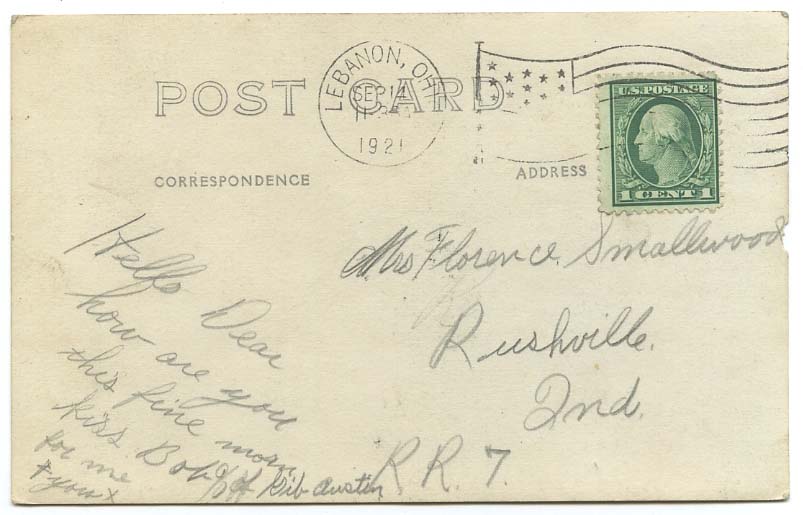 POST CARD
LEBANON, OH
SEP 14
1921
U.S. POSTAGE
1 CENT 1
CORRESPONDENCE
ADDRESS
Hello Dear
how are you
this fine morn
kiss Bob
for me
+ you x
Gib Austin
Mrs Florence Smallwood
Rushville.
Ind.
R R. 7.